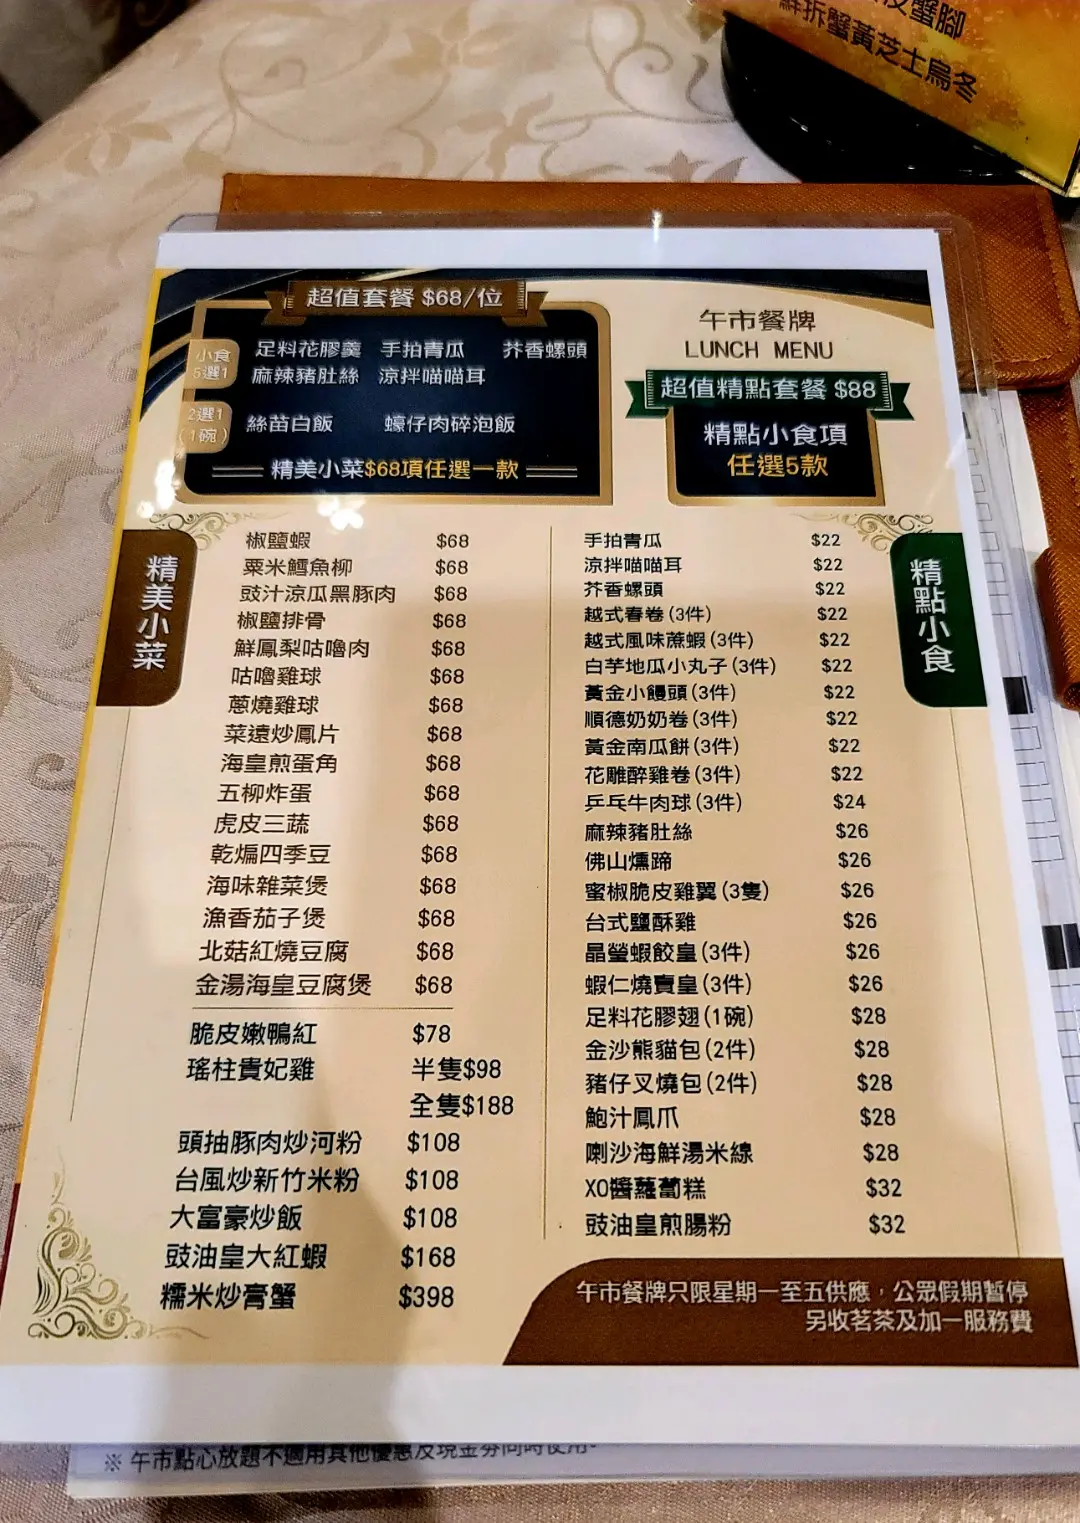 皮蟹腳
鮮拆蟹黃芝士烏冬
超值套餐 $68/位
小食 5選1
足料花膠羹 手拍青瓜 芥香螺頭
麻辣豬肚絲 涼拌喵喵耳
2選1 (1碗)
絲苗白飯 蠔仔肉碎泡飯
精美小菜$68項任選一款
午市餐牌
LUNCH MENU
超值精點套餐 $88
精點小食項
任選5款
精美小菜
椒鹽蝦 $68
粟米鱈魚柳 $68
豉汁涼瓜黑豚肉 $68
椒鹽排骨 $68
鮮鳳梨咕嚕肉 $68
咕嚕雞球 $68
蔥燒雞球 $68
菜遠炒鳳片 $68
海皇煎蛋角 $68
五柳炸蛋 $68
虎皮三蔬 $68
乾煸四季豆 $68
海味雜菜煲 $68
漁香茄子煲 $68
北菇紅燒豆腐 $68
金湯海皇豆腐煲 $68
脆皮嫩鴨紅 $78
瑤柱貴妃雞 半隻$98
全隻$188
頭抽豚肉炒河粉 $108
台風炒新竹米粉 $108
大富豪炒飯 $108
豉油皇大紅蝦 $168
糯米炒膏蟹 $398
精點小食
手拍青瓜 $22
涼拌喵喵耳 $22
芥香螺頭 $22
越式春卷(3件) $22
越式風味蔗蝦(3件) $22
白芋地瓜小丸子(3件) $22
黃金小饅頭(3件) $22
順德奶奶卷(3件) $22
黃金南瓜餅(3件) $22
花雕醉雞卷(3件) $22
乒乓牛肉球(3件) $24
麻辣豬肚絲 $26
佛山燻蹄 $26
蜜椒脆皮雞翼(3隻) $26
台式鹽酥雞 $26
晶瑩蝦餃皇(3件) $26
蝦仁燒賣皇(3件) $26
足料花膠翅(1碗) $28
金沙熊貓包(2件) $28
豬仔叉燒包(2件) $28
鮑汁鳳爪 $28
喇沙海鮮湯米線 $28
XO醬蘿蔔糕 $32
豉油皇煎腸粉 $32
午市餐牌只限星期一至五供應，公眾假期暫停
另收茗茶及加一服務費
※ 午市點心放題不適用其他優惠及現金券同時使用。